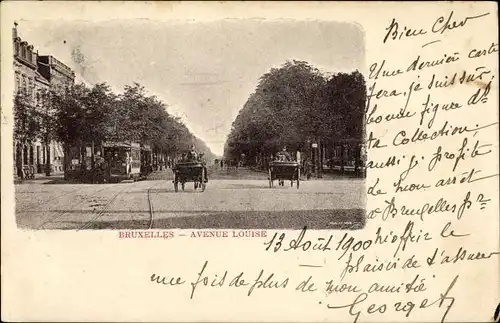 Bien Cher
Une dernière carte
fera, je suis sûr
bonne figure ds
ta Collection.
aussi je profite
de mon arrêt
à Bruxelles pr
BRUXELLES - AVENUE LOUISE
13 Août 1900
le
plaisir de t'assurer
une fois de plus de mon amitié
Georget